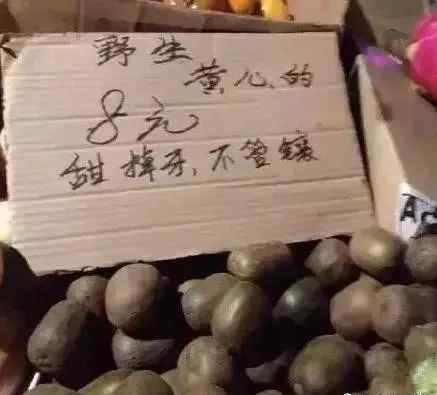 野生
黄心的
8元
甜掉牙、不管镶
A